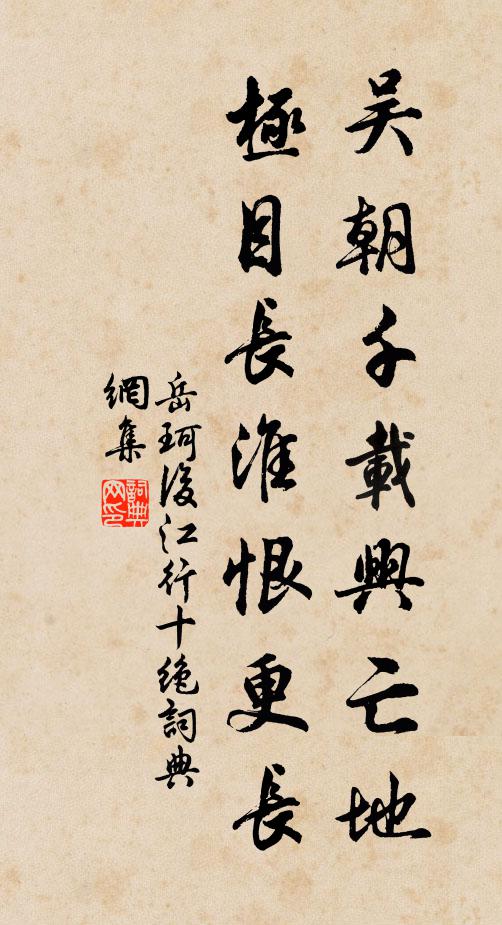 吴朝千載興亡地
極目長淮恨更長
岳珂後江行十絶詞典
網集
詞典網印